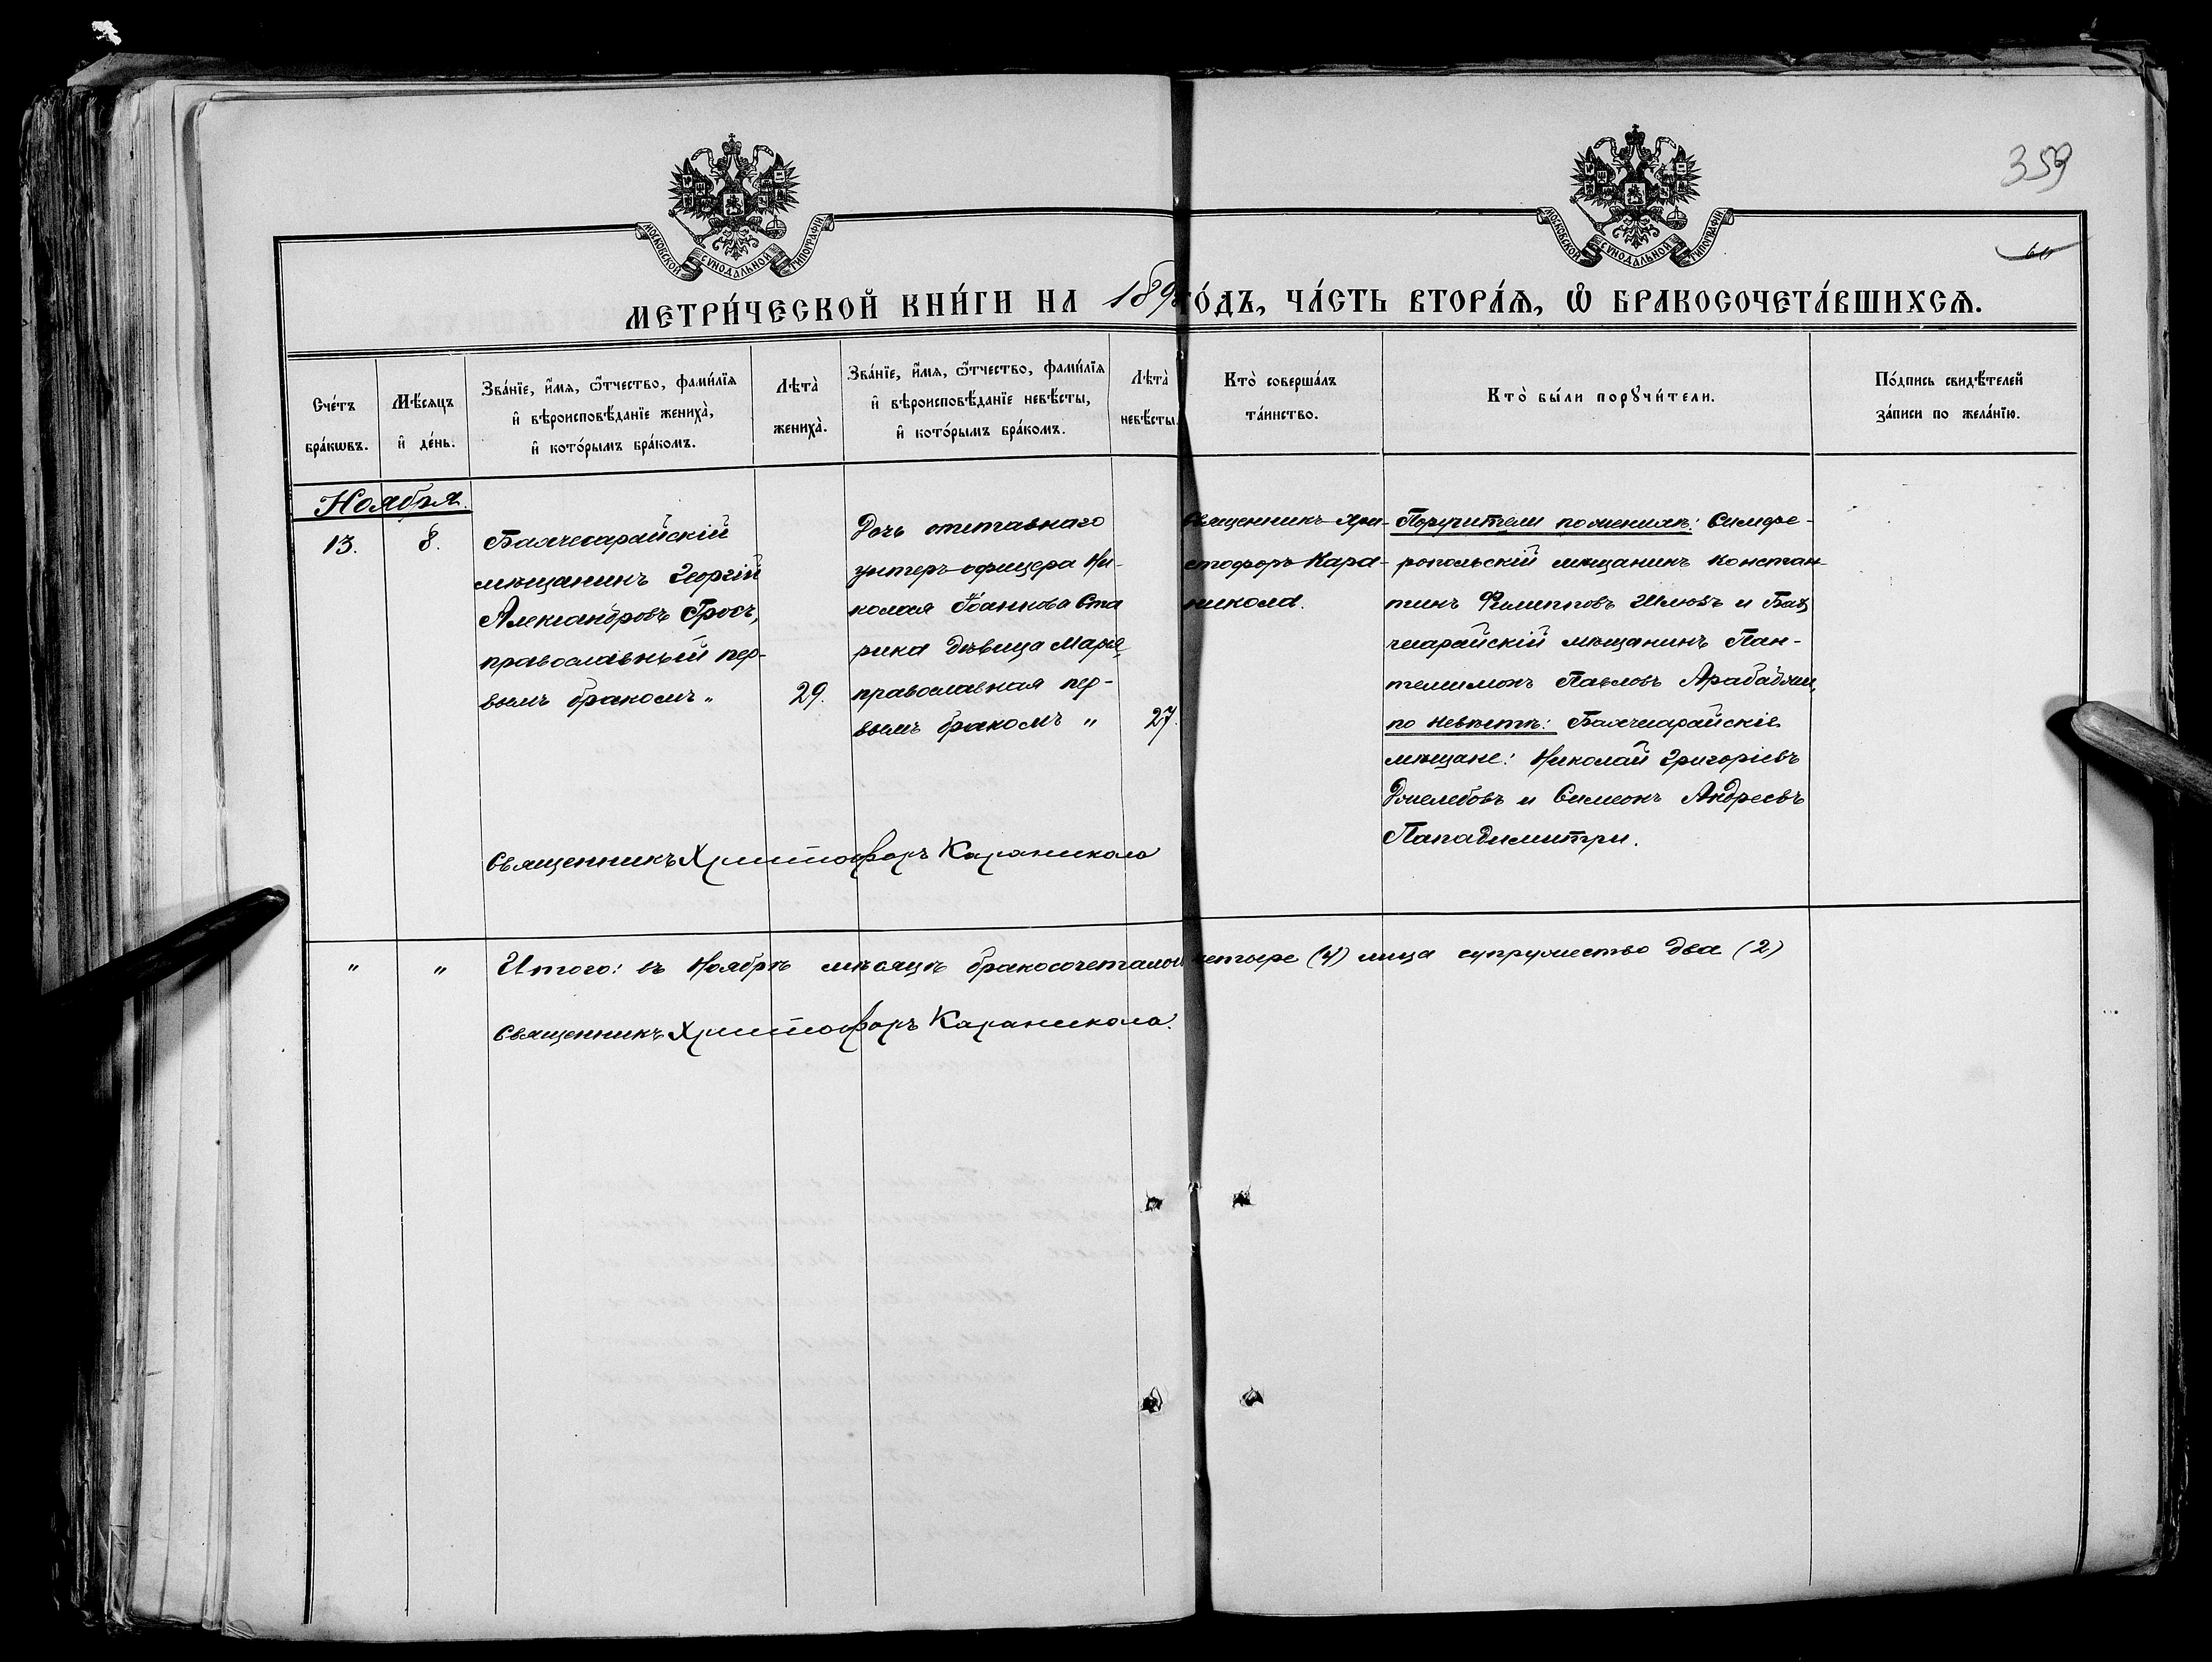 359
МОСКОВСКОЙ СѴНОДАЛЬНОЙ ТИПОГРАФІИ
МОСКОВСКОЙ СѴНОДАЛЬНОЙ ТИПОГРАФІИ
МЕТРИ́ЧЕСКОЙ КНИ́ГИ НА 189 ГО́ДЪ, ЧА́СТЬ ВТОРА́Я, Ѽ БРАКОСОЧЕТА́ВШИХСЯ.
Сче́тъ бра́кѡвъ.
Мѣ́сяцъ и҆ де́нь.
Зва́нїе, и҆́мя, ѻ҆́тчество, фами́лїя
и҆ вѣроисповѣ́данїе жениха̀,
и҆ кото́рымъ бра́комъ.
Лѣта̀
жениха̀.
Зва́нїе, и҆́мя, ѻ҆́тчество, фами́лїя
и҆ вѣроисповѣ́данїе невѣ́сты,
и҆ кото́рымъ бра́комъ.
Лѣта̀
невѣ́сты.
Кто̀ соверша́лъ
та́инство.
Кто̀ бы́ли порꙋчи́тели.
По́дпись свидѣ́телей
за́писи по жела́нїю.
Ноября.
13.
8.
Бахчесарайскій
мѣщанинъ Георгій
Александровъ Гросъ,
православный пер-
вымъ бракомъ „
29.
Дочь отставнаго
унтеръ-офицера Ни-
колая Іоаннова Ста
рика дѣвица Марія,
православная пер-
вымъ бракомъ „
27.
Священникъ Хри-
стофоръ Кара-
никола.
Поручители по женихѣ: Симфе-
ропольскій мѣщанинъ Констан-
тинъ Филипповъ и Бах
чисарайскій мѣщанинъ Пан-
телимонъ Павловъ Арабаджи,
по невѣстѣ: Бахчисарайскіе
мѣщане: Николай Григоріевъ
и Симеонъ Андреевъ
Пападимитри.
Священникъ Христофоръ Караникола
„ „ Итого: въ Ноябрѣ мѣсяцѣ бракосочеталось четыре (4) лица супружество два (2)
Священникъ Христофоръ Караникола.